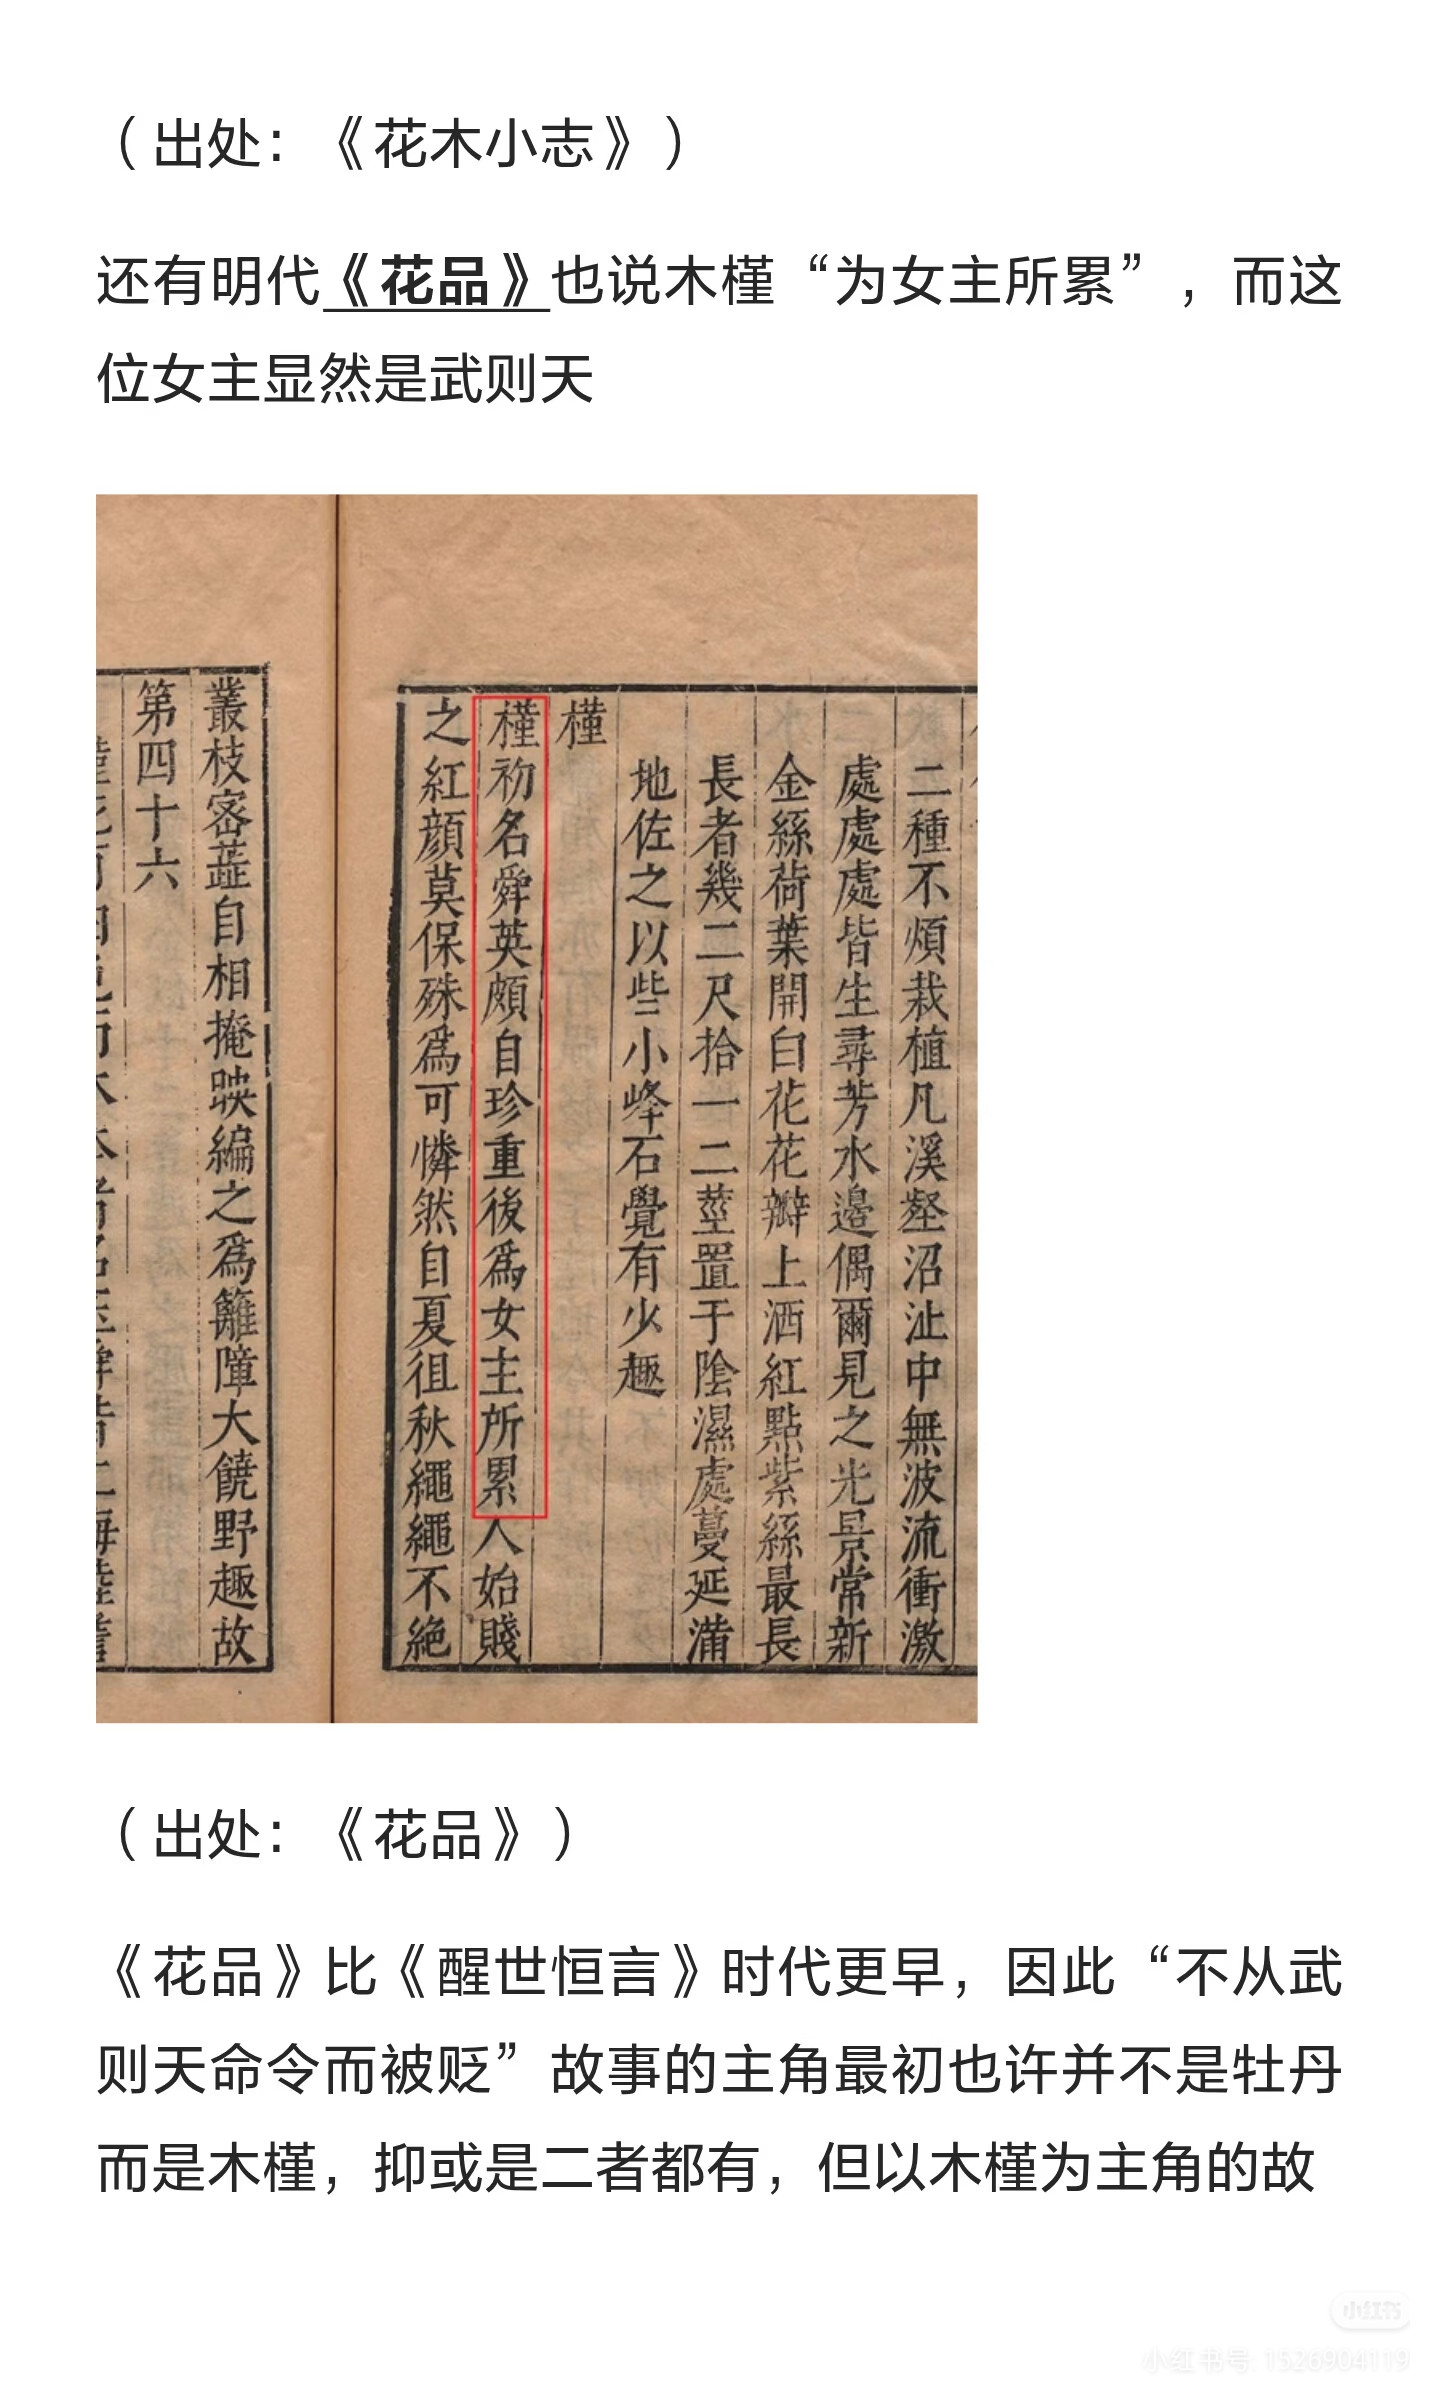 （出处：《花木小志》）
还有明代《花品》也说木槿“为女主所累”，而这
位女主显然是武则天
二種不煩栽植凡溪壑沼沚中無波流衝激
處處處皆生尋芳水邊偶爾見之光景常新
金絲荷葉開白花花瓣上洒紅點紫絲最長
長者幾二尺拾一二莖置于陰濕處蔓延滿
地佐之以些小峰石覺有少趣
槿
槿初名舜英頗自珍重後爲女主所累人始賤
之紅顔莫保殊爲可憐然自夏徂秋繩繩不絕
叢枝密蕋自相掩映編之爲籬障大饒野趣故
第四十六
（出处：《花品》）
《花品》比《醒世恒言》时代更早，因此“不从武
则天命令而被贬”故事的主角最初也许并不是牡丹
而是木槿，抑或是二者都有，但以木槿为主角的故
小红书
小红书号 1526904119